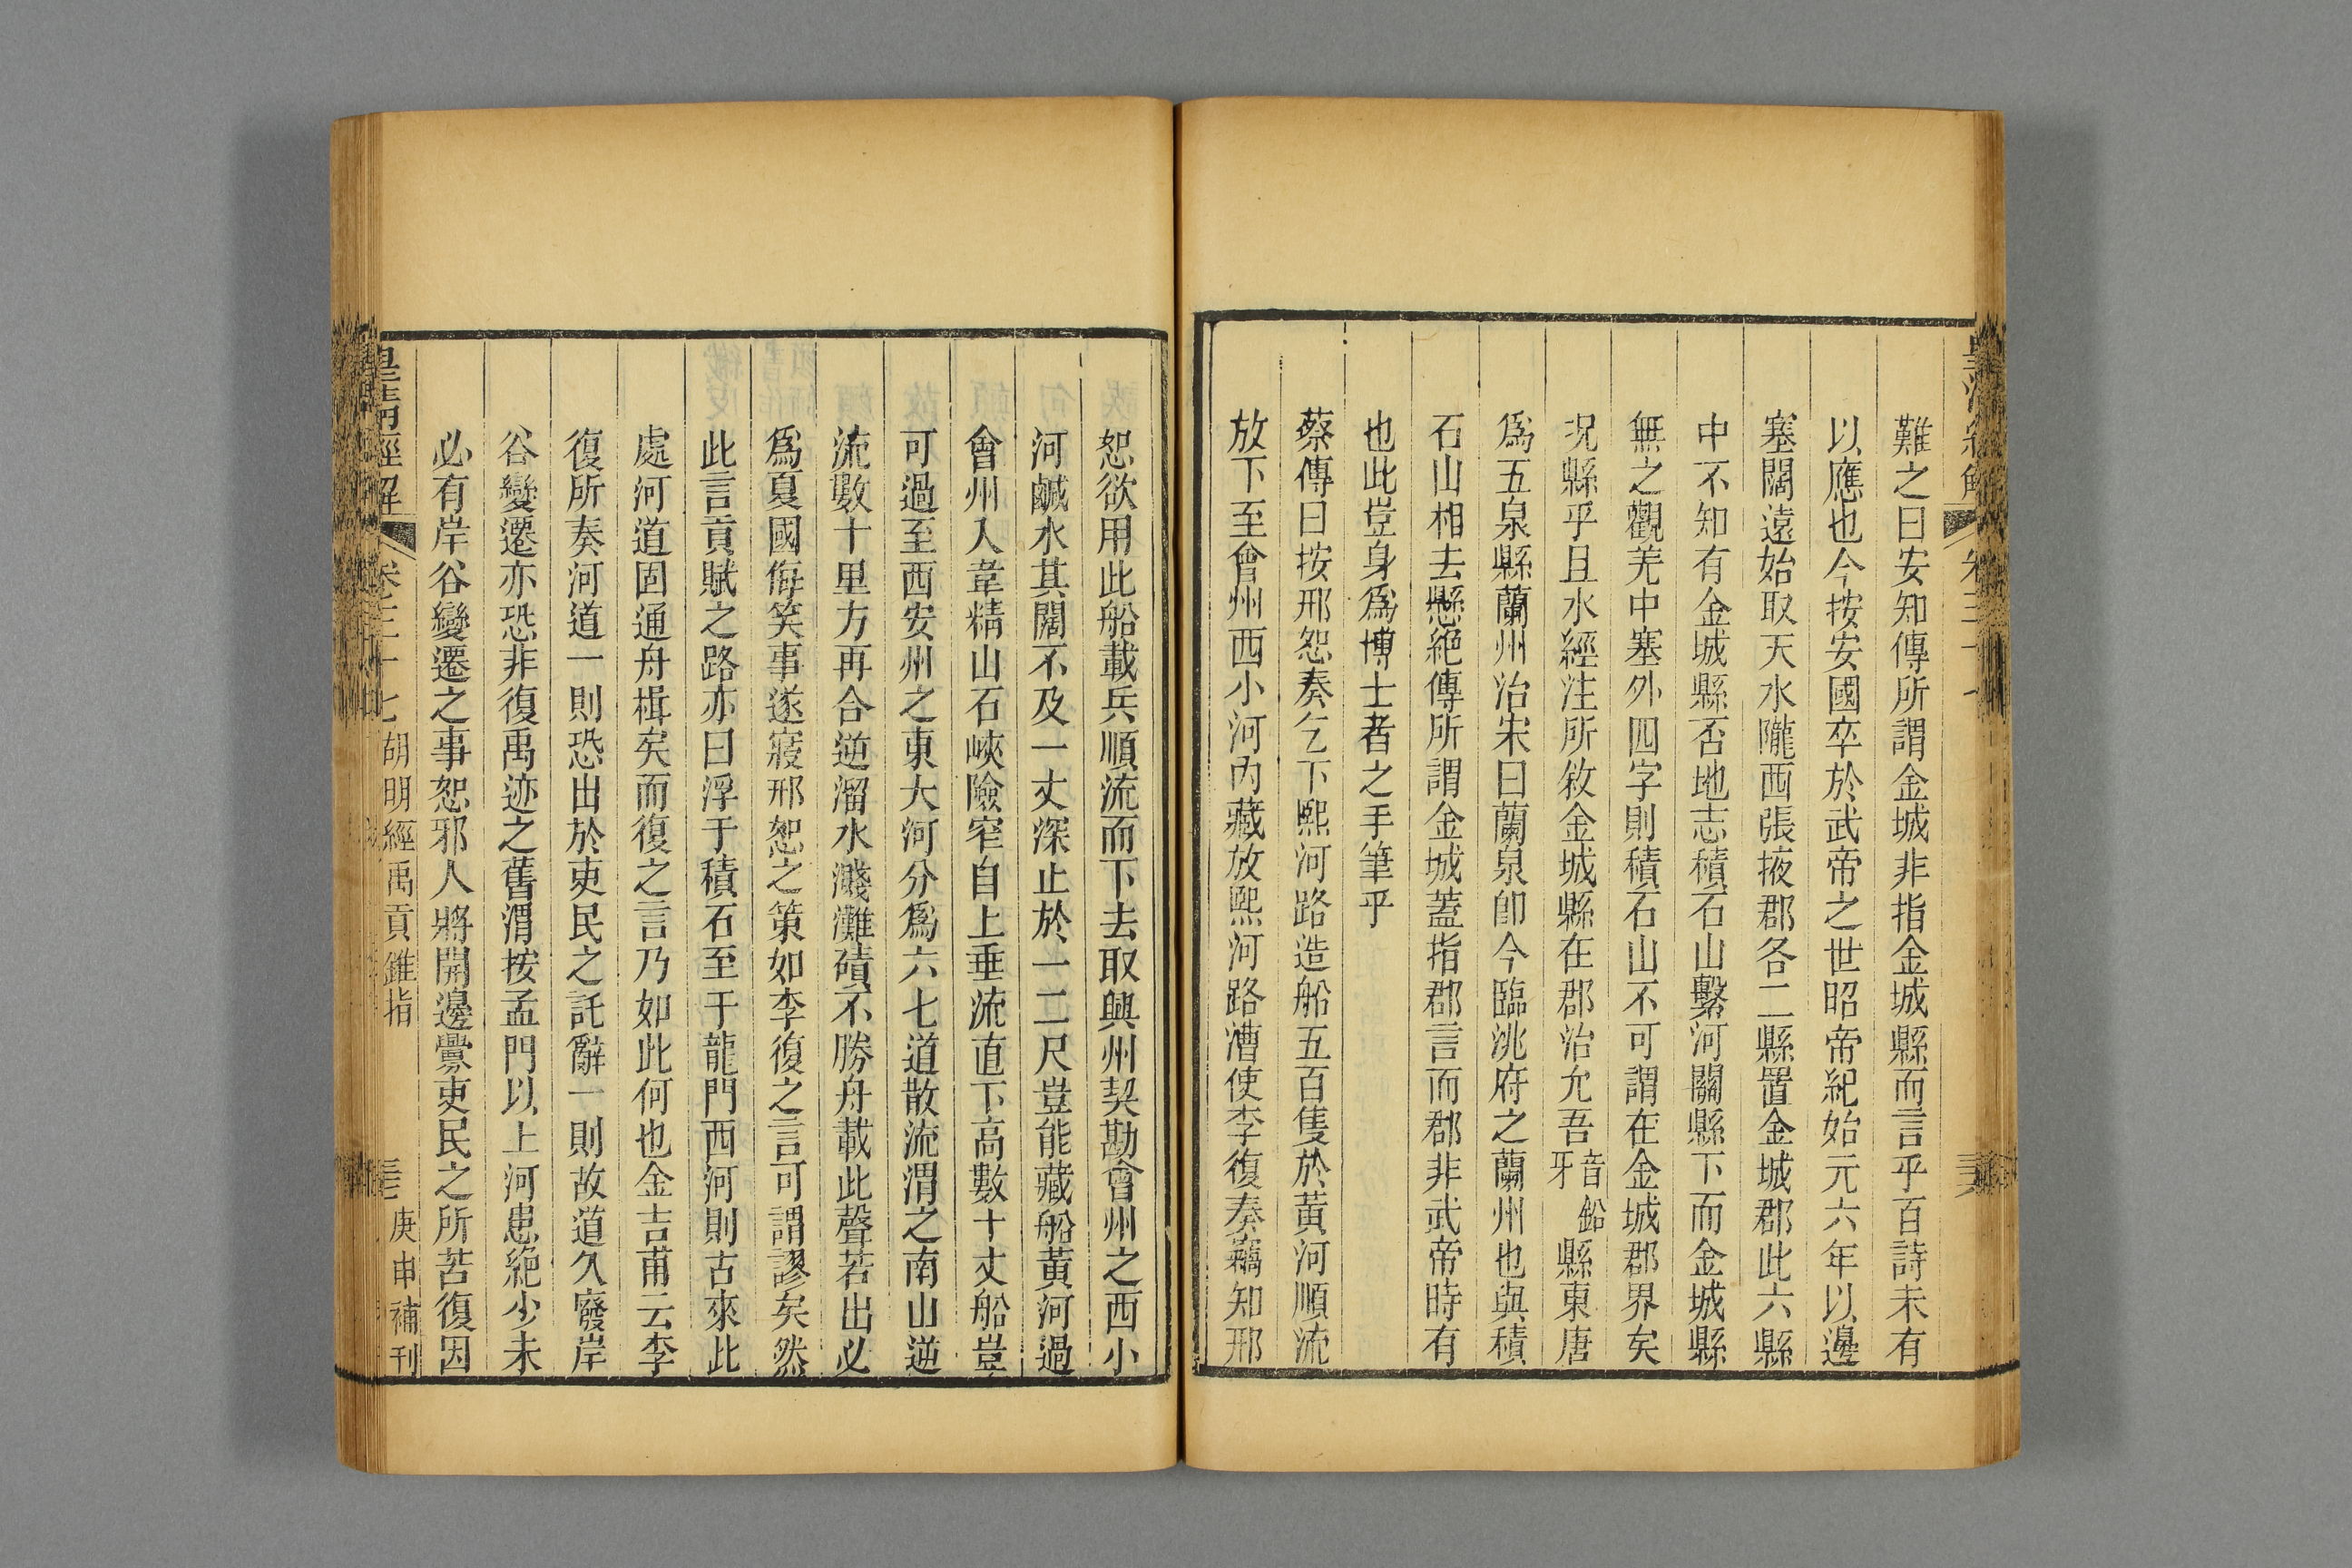 難之曰安知傳所謂金城非指金城縣而言乎百詩未有
以應也今按安國卒於武帝之世昭帝紀始元六年以邊
塞闊遠始取天水隴西張掖郡各二縣置金城郡此六縣
中不知有金城縣否地志積石山繫河關縣下而金城縣
無之觀羌中塞外四字則積石山不可謂在金城郡界矣
況縣乎且水經注所敘金城縣在郡治允吾音鉛牙縣東唐
爲五泉縣蘭州治宋曰蘭泉卽今臨洮府之蘭州也與積
石山相去懸絕傳所謂金城蓋指郡言而郡非武帝時有
也此豈身爲博士者之手筆乎
蔡傳曰按邢恕奏乞下熙河路造船五百隻於黃河順流
放下至會州西小河內藏放熙河路漕使李復奏竊知邢
恕欲用此船載兵順流而下去取興州契勘會州之西小
河鹹水其闊不及一丈深止於一二尺豈能藏船黃河過
會州入韋精山石峽險窄自上垂流直下高數十丈船豈
可過至西安州之東大河分爲六七道散流渭之南山逆
流數十里方再合逆溜水淺灘磧不勝舟載此聲若出必
爲夏國侮笑事遂寢邢恕之策如李復之言可謂謬矣然
此言貢賦之路亦曰浮于積石至于龍門西河則古來此
處河道固通舟楫矣而復之言乃如此何也金吉甫云李
復所奏河道一則恐出於吏民之託辭一則故道久廢岸
谷變遷亦恐非復禹迹之舊渭按孟門以上河患絕少未
必有岸谷變遷之事恕邪人將開邊釁吏民之所苦復因
皇清經解 卷三十七 胡明經禹貢錐指 庚申補刊